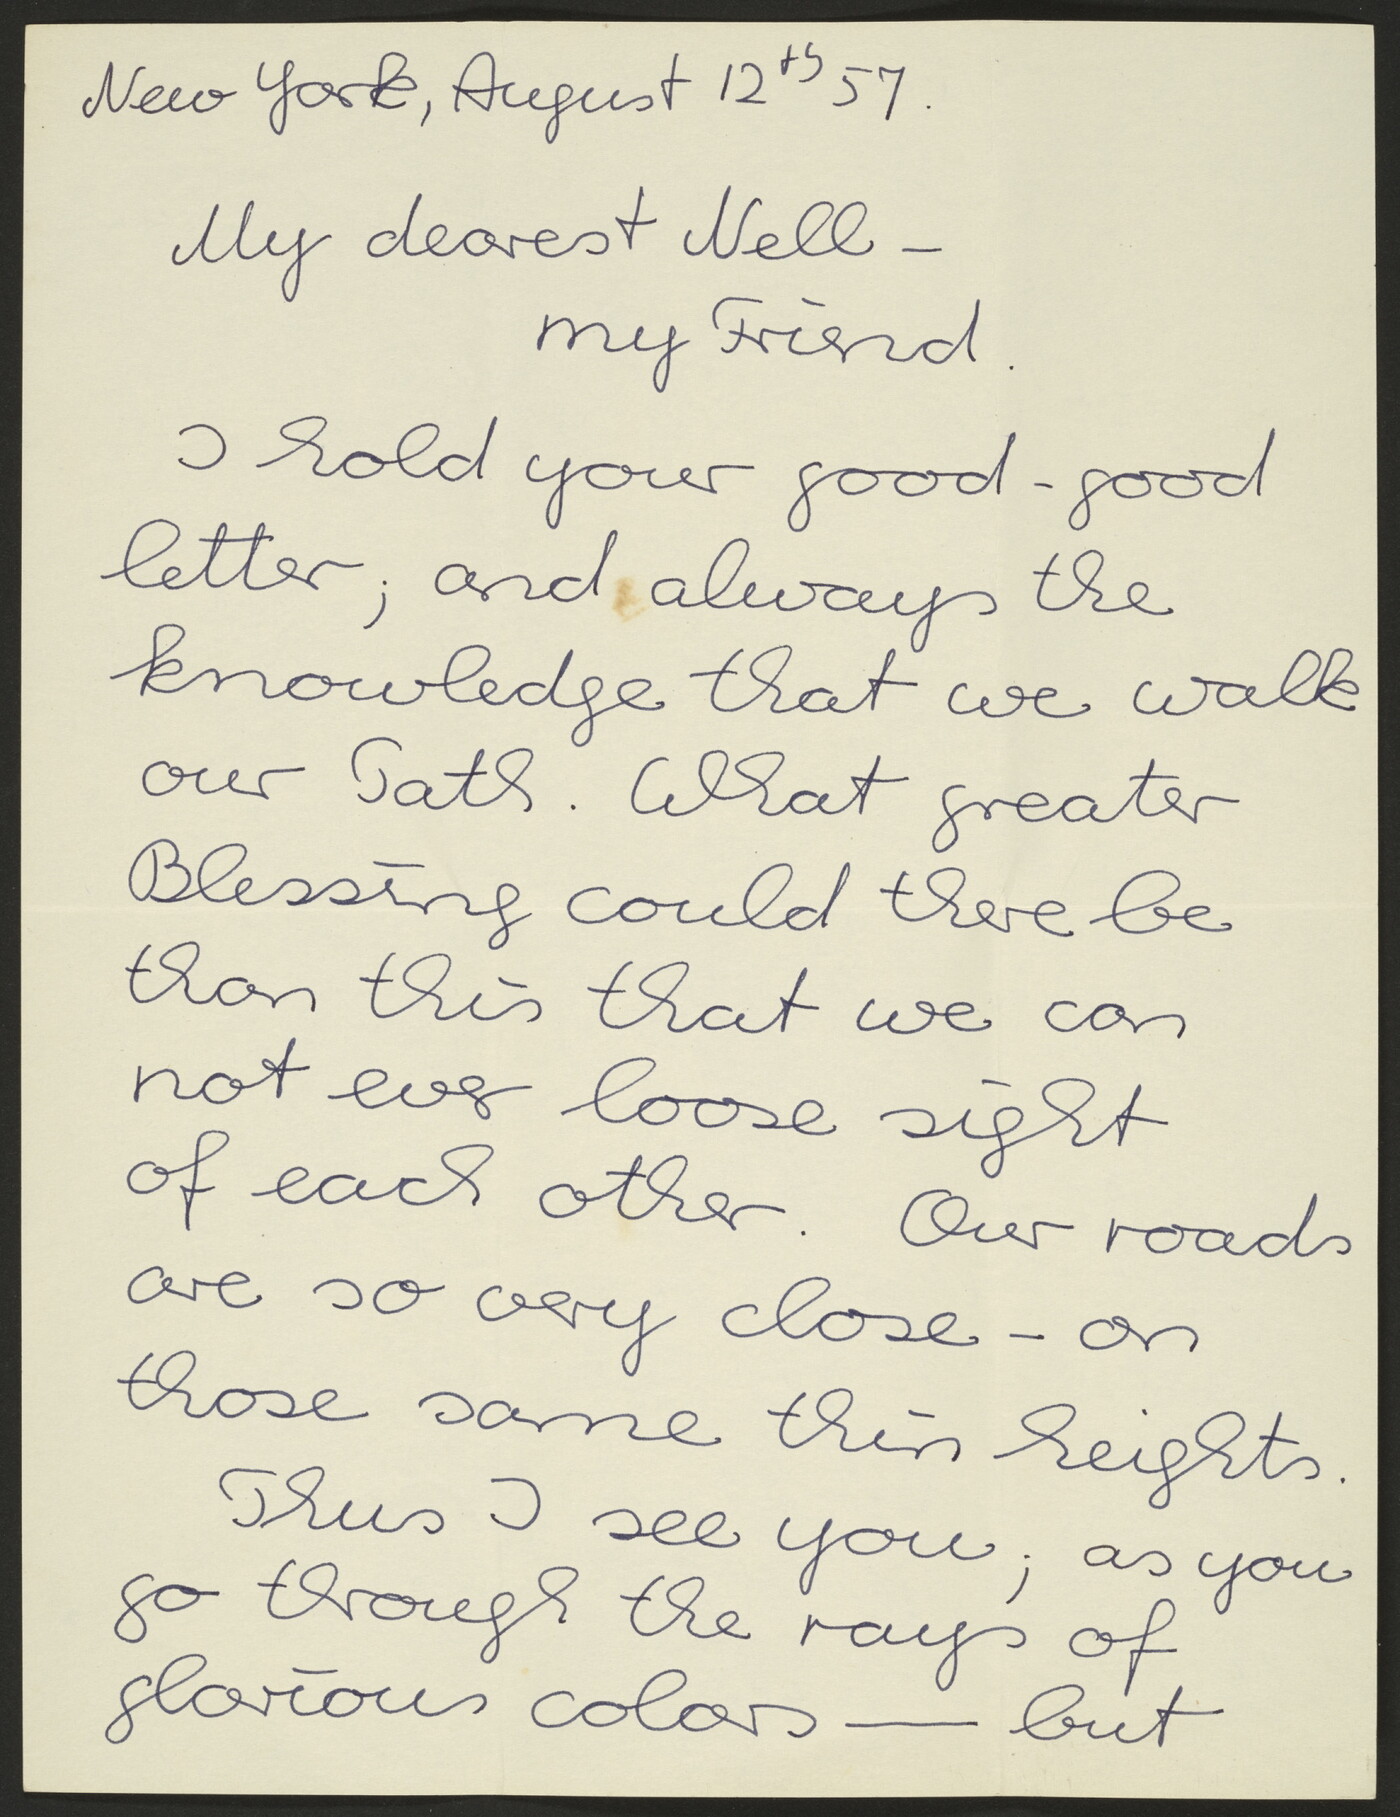 New York, August 12th 57.
My dearest Nell –
my Friend.
I hold your good - good
letter; and always the
knowledge that we walk
our Path. What greater
Blessing could there be
than this that we can
not ever loose sight
of each other. Our roads
are so very close – on
those same thin heights.
Thus I see you; as you
go through the rays of
glorious colors — but